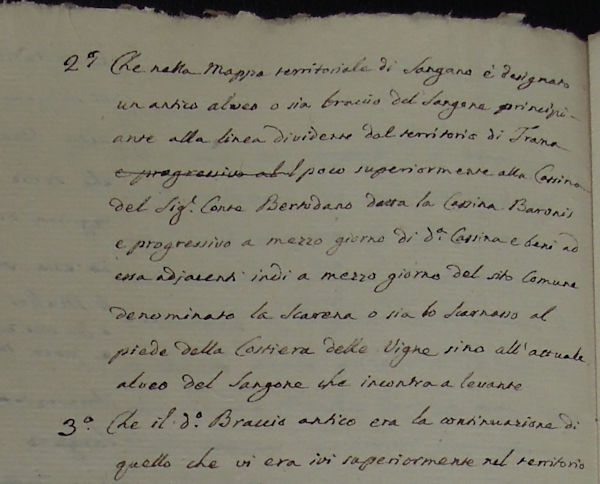 2º Che nella Mappa territoriale di Sangano è designato
un antico alveo o sia braccio del Sangone principi-
ante alla linea dividente dal territorio di Trana
e progressivo al l poco superiormente alla Cassina
del Sigr. Conte Bertodano detta la Cassina Baronis
e progressivo a mezzo giorno di da. Cassina e beni ad
essa adjacenti indi a mezzo giorno del sito Comune
denominato la Scarena o sia lo Scarnasso al
piede della Costiera delle Vigne sino all'attuale
alveo del Sangone che incontra a levante
3º. Che il do. Braccio antico era la continuazione di
quello che vi era ivi superiormente nel territorio